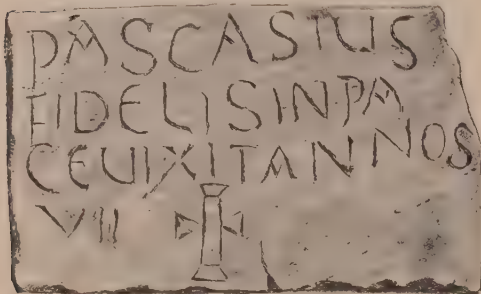 PASCASIUS
FIDELIS IN PA
CE VIXIT ANNOS
VIII